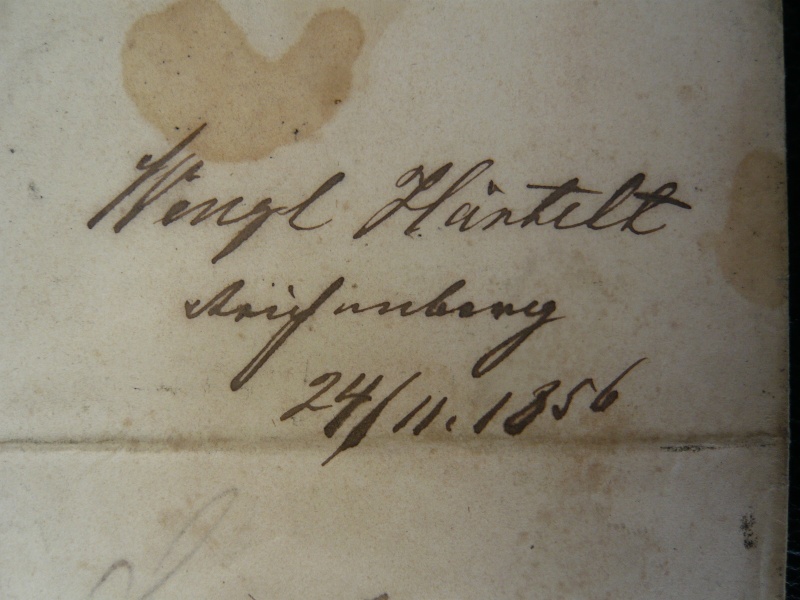 Wenzl Härtelt
Reichenberg
24/11. 1856